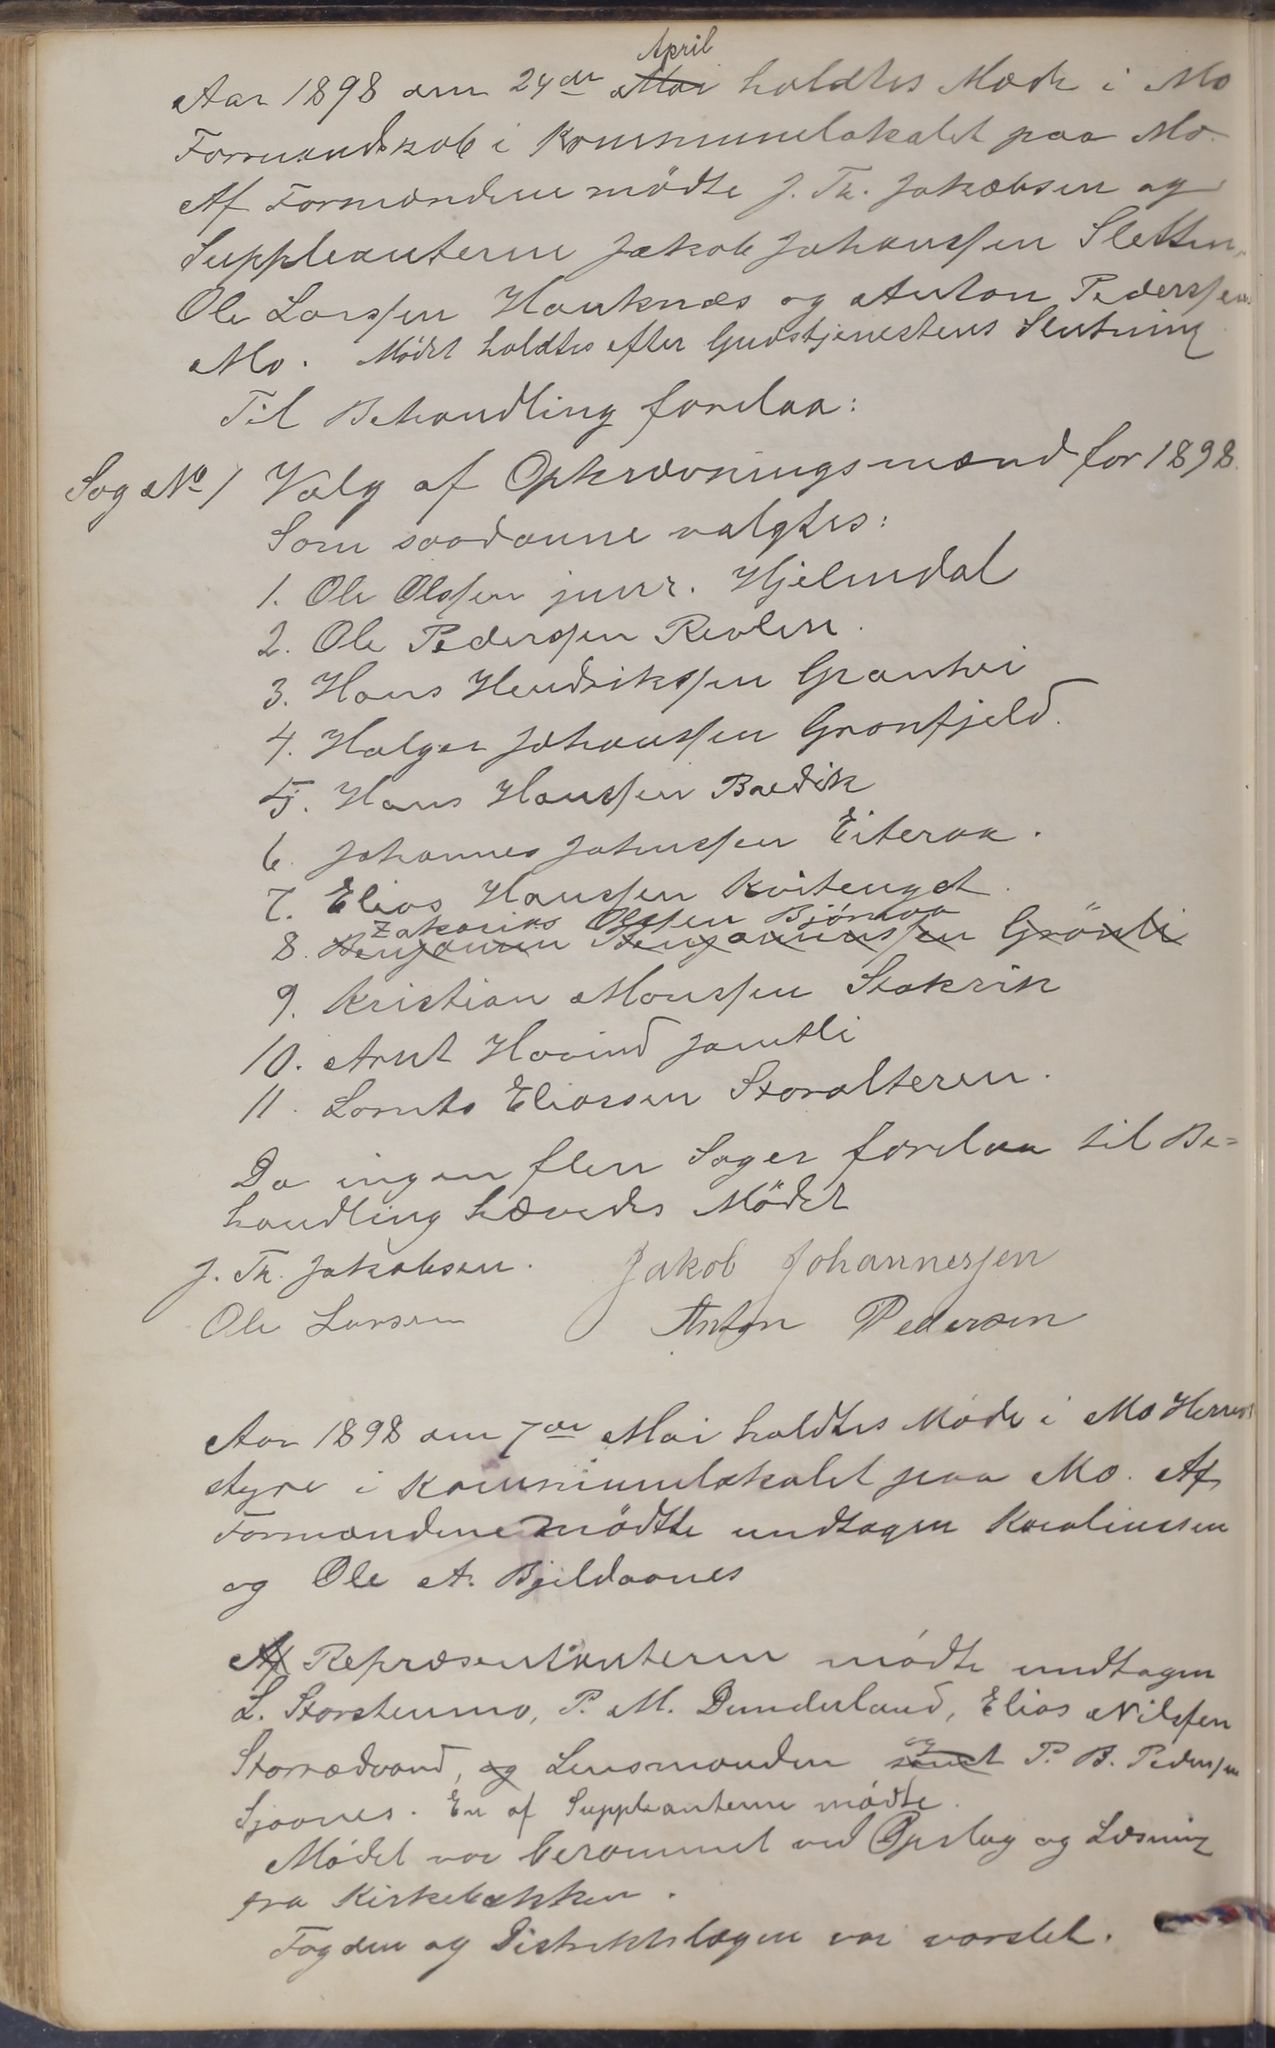 April
Aar 1898 den 24de Mai holdtes Møde i Mo
Formandskab i Kommunelokalet paa Mo.
Af Formændene mödte J. Th. Jakobsen og
Suppleanterne Jakob Johanssen Sletten,
Ole Larssen Hauknæs og Anton Pederssen
Mo. Mödet holdtes efter Gudstjenestens Slutning
Til Behandling forelaa:
Sag No 1 Valg af Opkrævningsmænd for 1898.
Som saadanne valgtes:
1. Ole Olssen junr. Hjelmdal
2. Ole Pederssen Revlen.
3. Hans Hendrikssen Granhei
4. Holger Johanssen Grønfjeld.
5. Hans Hanssen Bredik
6. Johannes Johnssen Eiteraa.
7. Elias Hanssen Kvitenget.
Zakarias Olssen Bjørnaa
8. Benjamin Benjaminssen Grönli
9. Kristian Monssen Stokvik
10. Arnt Hovind Jamtli
11. Lornts Eliassen Storalteren.
Da ingen flere Sager forelaa til Be=
handling hævedes Mödet
J. Th. Jakobsen. Jakob Johannesen
Ole Larsen Anton Pedersen
Aar 1898 den 7de Mai holdtes Møde i Mo Herreds
styre i Kommunelokalet paa Mo. Af
Formændene mödte undtagen Karolinssen
og Ole A. Bjeldaanes
Af Repræsentanterne mödte undtagen
L. Storstenmo, P. M. Dunderland, Elias Nilssen
og
Storrødvand, og Lensmanden samt P. B. Pederssen
Sjaanes. En af Suppleanterne mødte.
Mödet var berammet ved Opslag og Læsning
fra Kirkebakken.
Fogden og Distriktslægen var varslet.